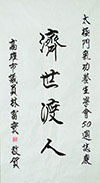 太極門氣功養生學會50週年慶
濟世渡人
高雄市議員林 敬賀